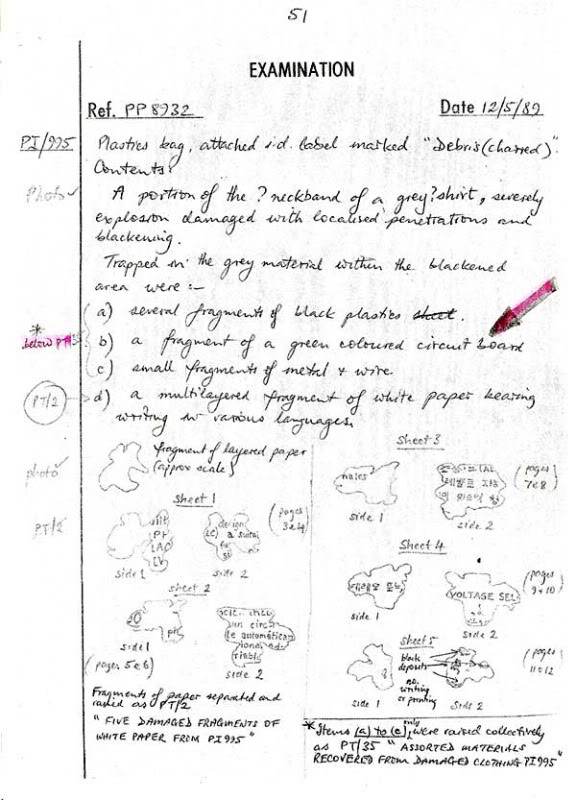 51
EXAMINATION
Ref. PP 8932
Date 12/5/89
PI/995
Plastics bag, attached i.d. label marked "Debris (charred)".
Contents:
Photo ✓
A portion of the ? neckband of a grey ? shirt, severely
explosion damaged with localised penetrations and
blackening.
Trapped in the grey material within the blackened
area were :-
a) several fragments of black plastics sheet.
*
below PT/35
b) a fragment of a green coloured circuit board
c) small fragments of metal & wire.
PT/2
d) a multilayered fragment of white paper bearing
writing in various languages.
photo ✓
fragment of layered paper
(approx scale)
PT/2
Sheet 1
PI
LAO
EV
side 1
design
a sustai
side 2
(pages
3 & 4)
Sheet 2
side 1
un circu
te automátican
side 2
(pages 5 & 6)
Fragments of paper separated and
raised as PT/2
" FIVE DAMAGED FRAGMENTS OF
WHITE PAPER FROM PI 995 "
Sheet 3
side 1
side 2
(pages
7 & 8)
Sheet 4
side 1
VOLTAGE SEL
side 2
(pages
9 & 10)
Sheet 5
black
deposits
no
writing
or printing
side 1
side 2
(pages
11 & 12)
* Items (a) to (c) only, were raised collectively
as PT/35 " ASSORTED MATERIALS
RECOVERED FROM DAMAGED CLOTHING PI 995 "